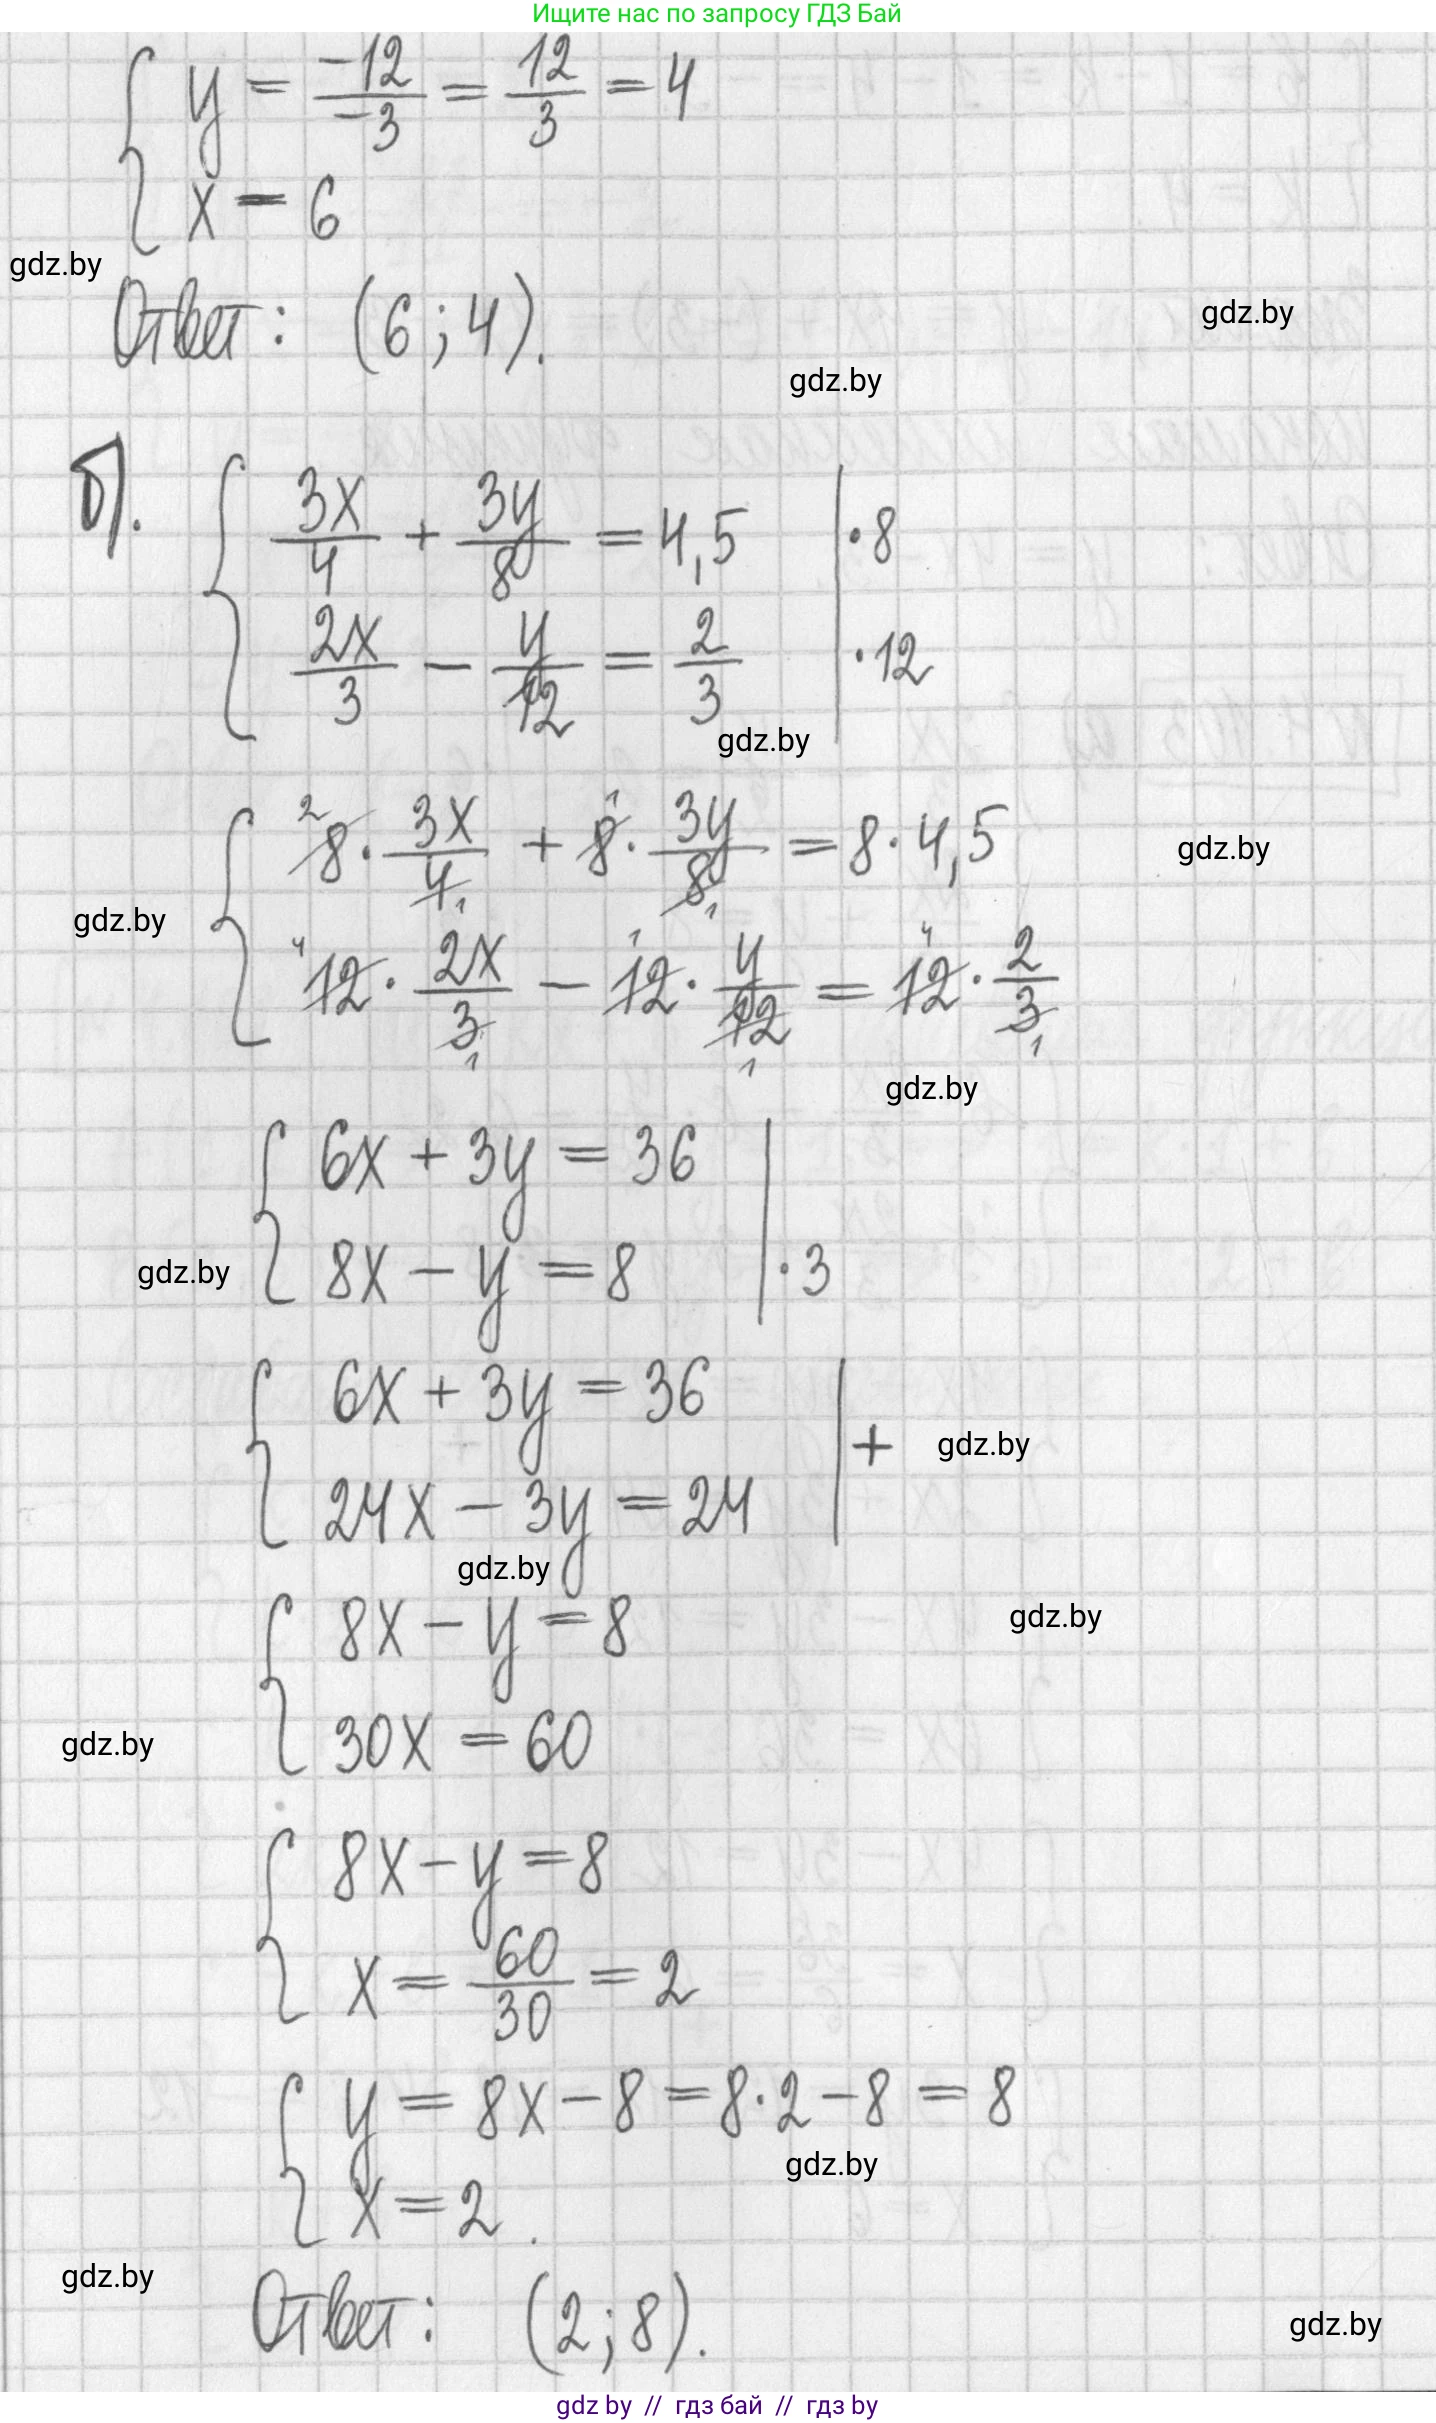 Ищите нас по запросу ГДЗ Бай
y = -12/-3 = 12/3 = 4
x = 6
gdz.by
Ответ: (6; 4).
gdz.by
gdz.by
б).
3x/4 + 3y/8 = 4,5 | ·8
2x/3 - y/12 = 2/3 | ·12
gdz.by
2 8 · 3x/4 1 + 1 8 · 3y/8 1 = 8 · 4,5
gdz.by
gdz.by
4 12 · 2x/3 1 - 1 12 · y/12 1 = 4 12 · 2/3 1
gdz.by
6x + 3y = 36
8x - y = 8 | ·3
gdz.by
6x + 3y = 36 | +
gdz.by
24x - 3y = 24
gdz.by
8x - y = 8
gdz.by
30x = 60
gdz.by
8x - y = 8
x = 60/30 = 2
y = 8x - 8 = 8·2 - 8 = 8
gdz.by
x = 2.
gdz.by
Ответ: (2; 8).
gdz.by
gdz by // гдз бай // гдз by